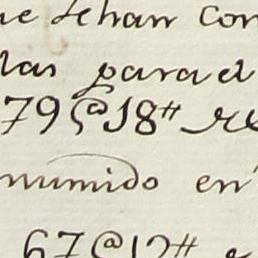 ue se han con
las para el
79@18#
numido en
67@12#